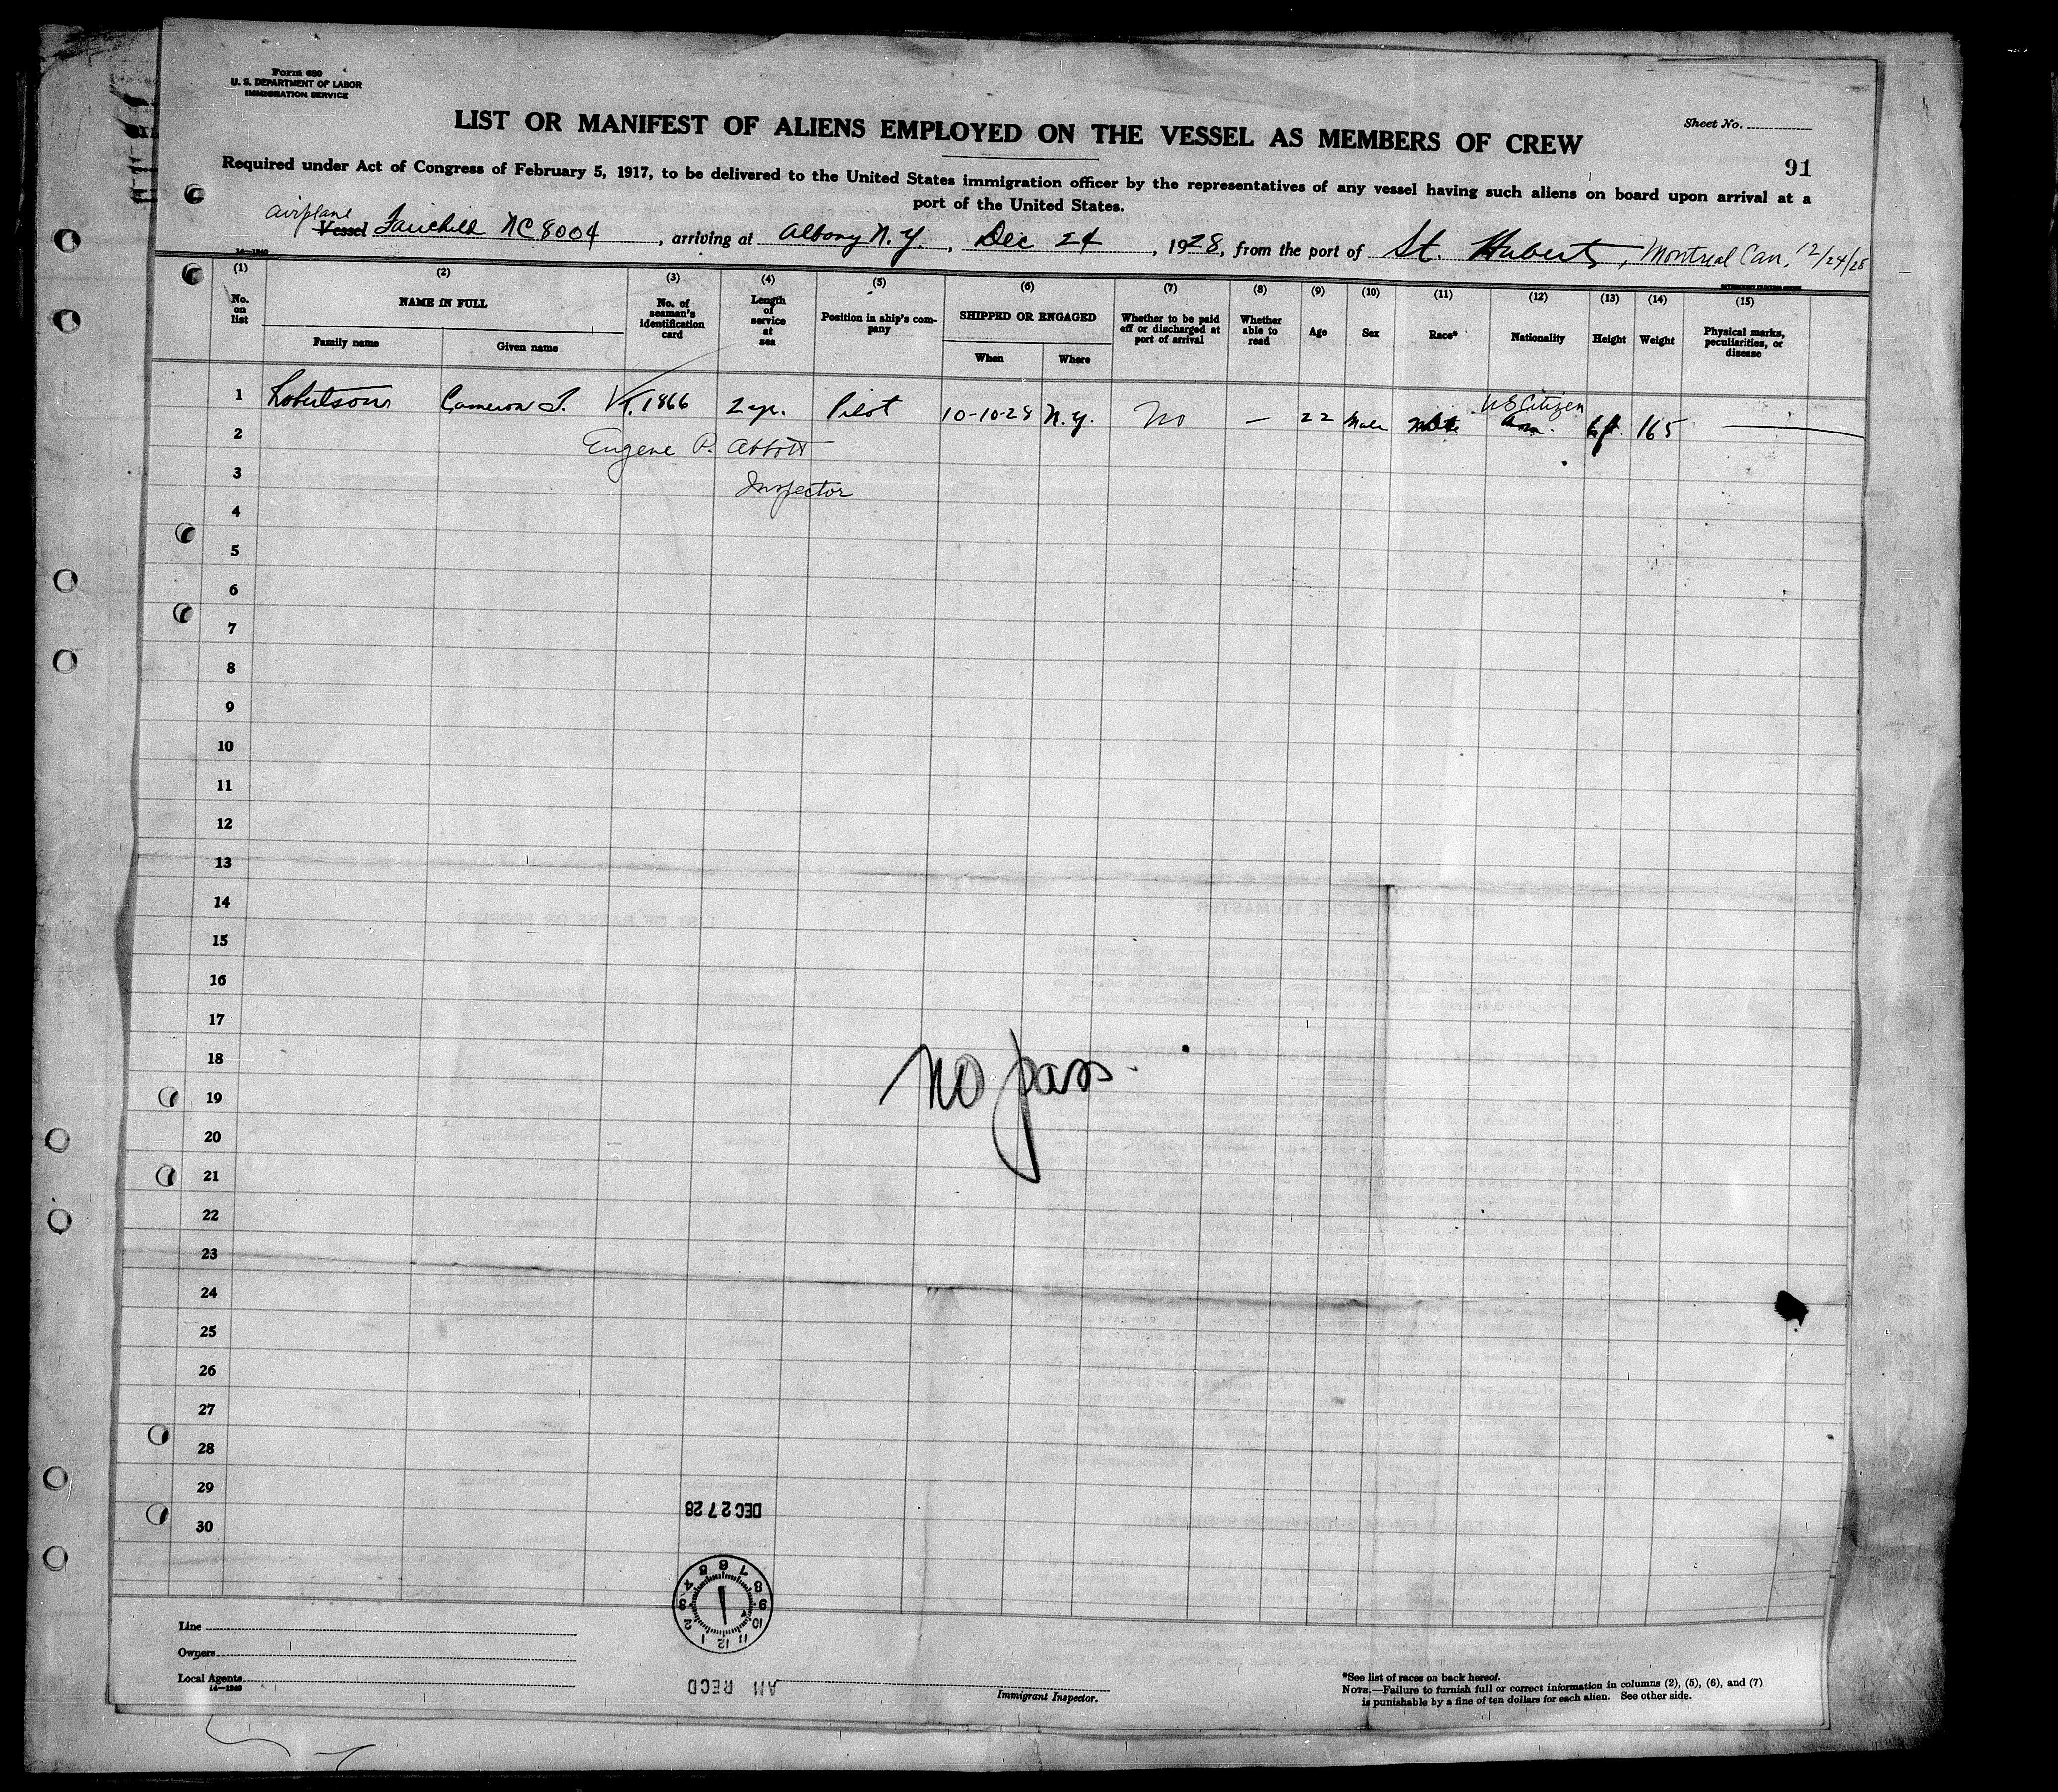 Form 680
U. S. DEPARTMENT OF LABOR
IMMIGRATION SERVICE
LIST OR MANIFEST OF ALIENS EMPLOYED ON THE VESSEL AS MEMBERS OF CREW
Sheet No.
91
Required under Act of Congress of February 5, 1917, to be delivered to the United States immigration officer by the representatives of any vessel having such aliens on board upon arrival at a
port of the United States.
airplane
Vessel Fairchild NC 8004, arriving at Albany N.Y., Dec 24, 1928, from the port of St. Hubert, Montreal Can, 12/24/28
14—1240
(1) (2) (3) (4) (5) (6) (7) (8) (9) (10) (11) (12) (13) (14) (15)
No. on list
NAME IN FULL
Family name
Given name
No. of seaman's identification card
Length of service at sea
Position in ship's company
SHIPPED OR ENGAGED
When
Where
Whether to be paid off or discharged at port of arrival
Whether able to read
Age
Sex
Race*
Nationality
Height
Weight
Physical marks, peculiarities, or disease
US Citizen
1 Robertson Cameron T. 1866 2 yr. Pilot 10-10-28 N.Y. No — 22 Male Am. 6 ft. 165
2 Eugene P. Abbott
3 Inspector
4
5
6
7
8
9
10
11
12
13
14
15
16
17
18
no pass
19
20
21
22
23
24
25
26
27
28
29
DEC 27 28
30
6 7 8 9 10 11 12 1 2 3 4 5
AM RECD
Line
Owners
Local Agents
14—1240
Immigrant Inspector.
*See list of races on back hereof.
NOTE.—Failure to furnish full or correct information in columns (2), (5), (6), and (7)
is punishable by a fine of ten dollars for each alien. See other side.